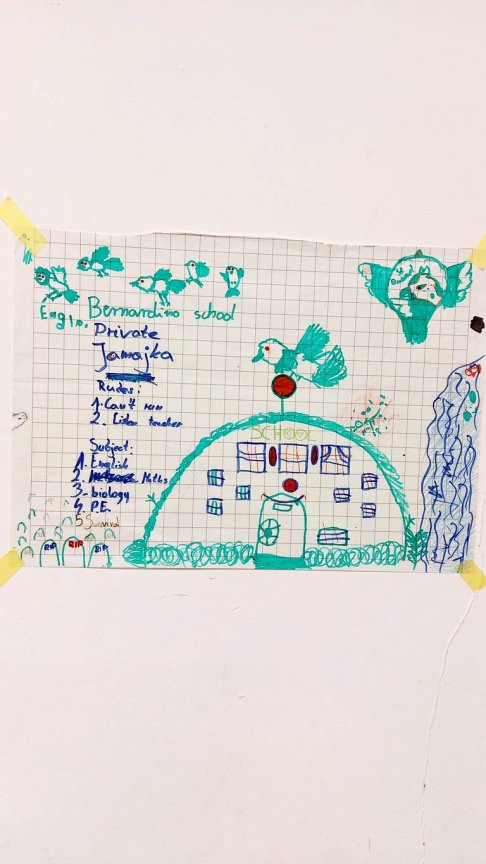 Engin. Bernardino school
Private
Jamajka
Rules:
1. Can't run
2. Listen teacher
Subject:
1. English
2. Maths
3. biology
4. P.E.
5 Survival
SCHOOL
RIP RIP RIP